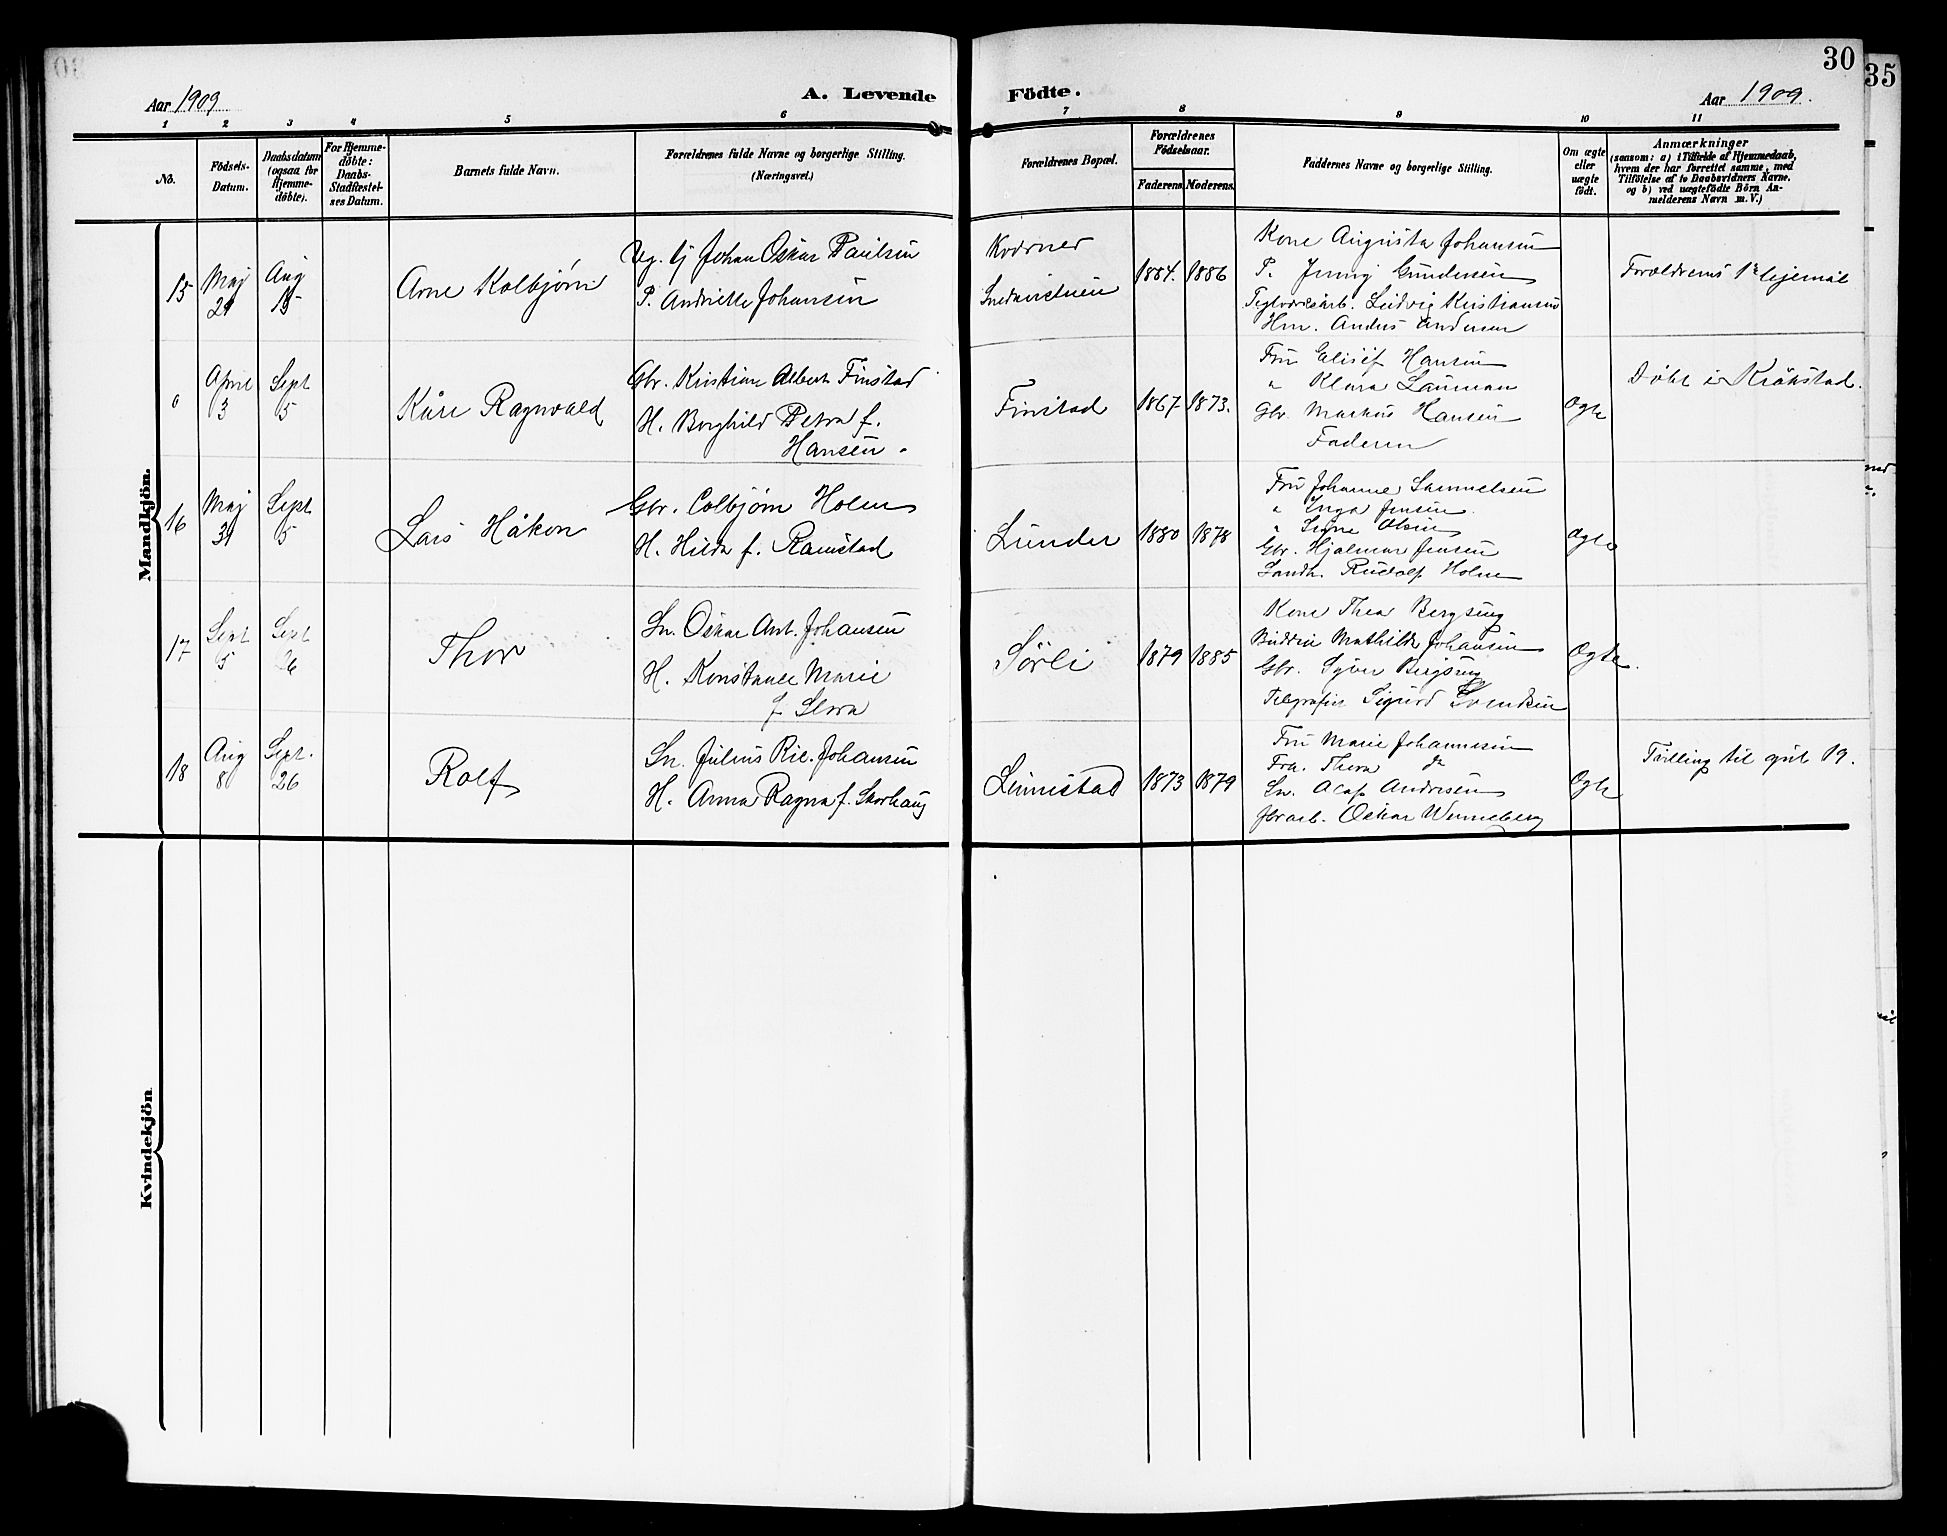 30
35
Aar 1909
A. Levende
Födte.
Aar 1909.
1 2 3 4 5 6 7 8 9 10 11
No.
Födsels-
Datum.
Daabsdatum
(ogsaa for
Hjemme-
döbte).
For Hjemme-
döbte:
Daabs-
Stadfæstel-
ses Datum.
Barnets fulde Navn.
Forældrenes fulde Navne og borgerlige Stilling.
(Næringsvei.)
Forældrenes Bopæl.
Forældrenes
Födselsaar.
Faderens.
Moderens.
Faddernes Navne og borgerlige Stilling.
Om ægte
eller
uægte
födt.
Anmærkninger
(saasom: a) i Tilfælde af Hjemmedaab,
hvem der har forrettet samme, med
Tilföielse af to Daabsvidners Navne.
og b) ved uægtefödte Börn An-
melderens Navn m. V.)
Mandkjön.
15
Maj
21
Aug
15
Arne Kolbjørn
Ug. tj Johan Oskar Paulsen
P. Andrette Johansen
1884. 1886
Kone Augusta Johansen
P. Jenny Gundersen
Teglværksarb. Ludvig Kristiansen
Hm. Anders Andersen
Forældrenes 1ste lejemål
0
April
3
Sept
5
Kåre Ragnvald
Gbr. Kristian Albert Finstad
H. Borghild Petra f.
Hansen.
Finstad
1867 1873.
Fru Elisef Hansen
" Klara Lauman
Gbr. Markus Hansen
Faderen
Ogte
Døbt i Kråkstad.
16
Maj
31
Sept
5
Lars Håkon
Gbr. Colbjørn Holm
H. Hilda f. Ramstad
Lunder
1880 1878
Fru Johanne Samuelsen
" Inga Jensen
" Signe Olsen
Gbr. Hjalmar Jensen
Landh. Rudolf Holm
Ogte
17
Sept
5
Sept
26
Thor
Sn. Oskar Ant. Johansen
H. Konstance Marie
f. Slora
Sørli
1879 1885
Kone Thea Bergseng
Budeie Mathilde Johansen
Gbr. Syver Bergseng
Telegrafist Sigurd Svendsen
Ogte.
18
Aug
8
Sept.
26
Rolf
Sn. Julius Ric. Johansen
H. Anna Ragna f. Skorhaug
Linnestad
1873 1879
Fru Marie Johannesen
Frk. Thora do
Sn. Olaf Andresen
Jbrarb. Oskar Wenneberg
Ogte
Tvilling til gut 19.
Kvindekjön